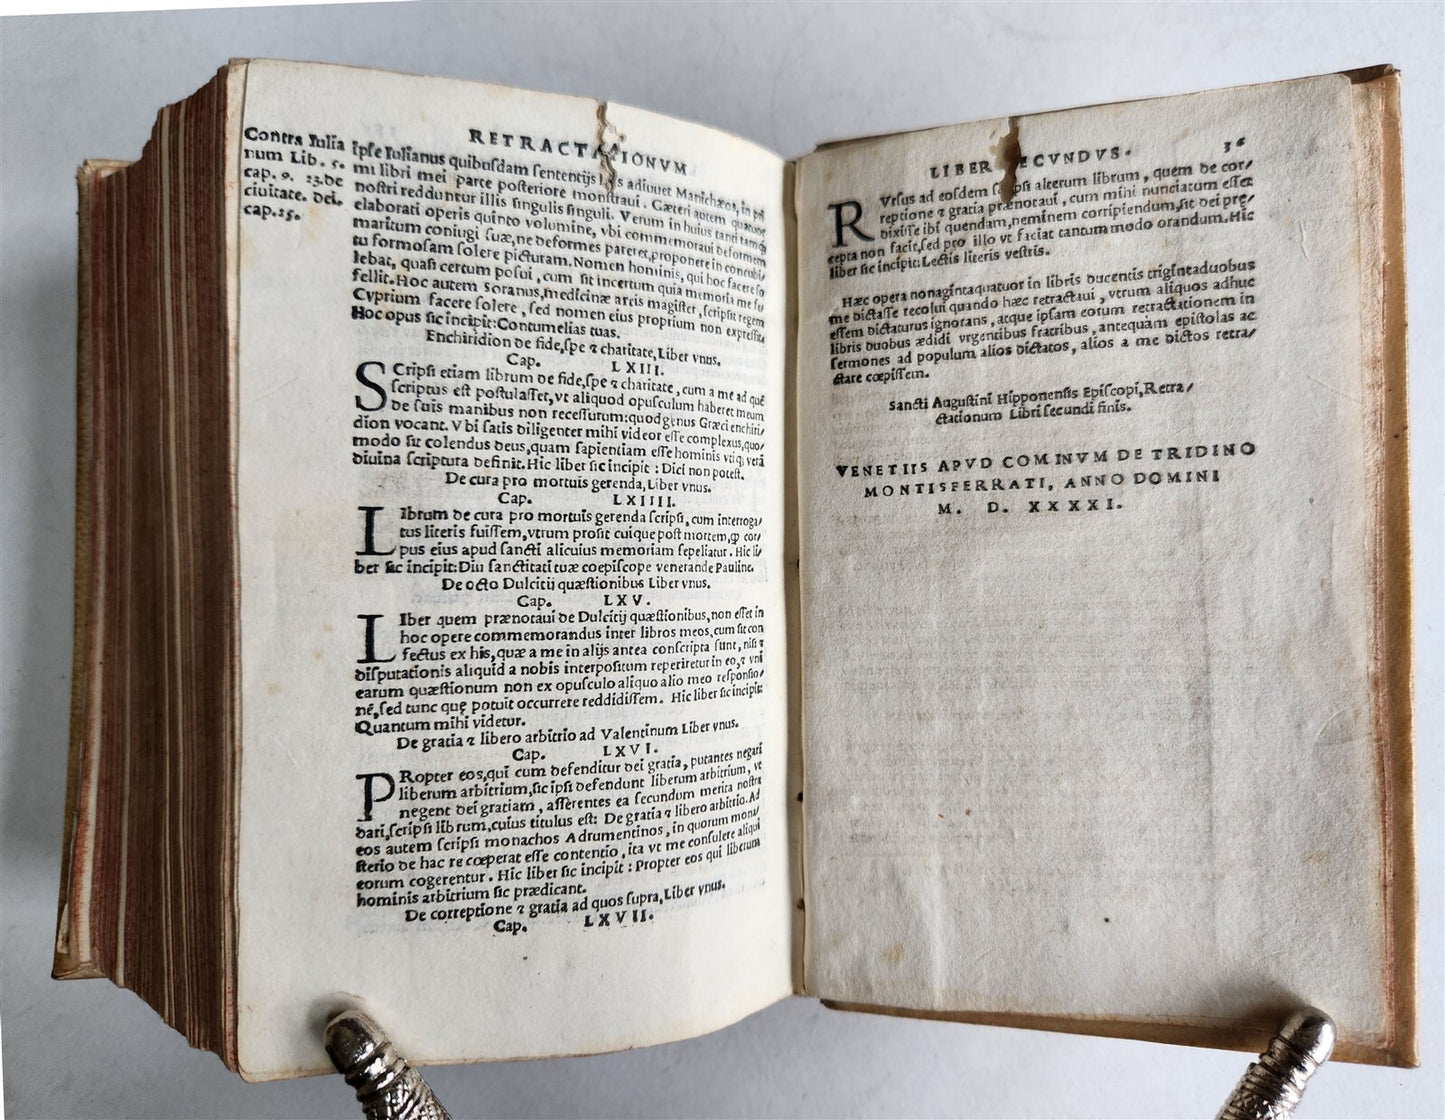 RETRACTATIONVM
Contra Iulia
num Lib. 5.
cap. 9. 23. de
ciuitate. dei.
cap. 25.
Ipse Iulianus quibusdam sententijs suis adiuuet Manichæos, in pri
mi libri mei parte posteriore monstraui. Cæteri autem quatuor
nostri redduntur illis singulis singuli. Verum in huius tanti tamq̃
elaborati operis quinto volumine, vbi commemoraui deformem
maritum coniugi suæ, ne deformes pareret, proponere in concubi/
tu formosam solere picturam. Nomen hominis, qui hoc facere so
lebat, quasi certum posui, cum sit incertum quia memoria me fe
fellit. Hoc autem Soranus, medicinæ artis magister, scripsit regem
Cyprium facere solere, sed nomen eius proprium non expressit.
Hoc opus sic incipit: Contumelias tuas.
Enchiridion de fide, spe ⁊ charitate, Liber vnus.
Cap. LXIII.
SCripsi etiam librum de fide, spe ⁊ charitate, cum a me ad quẽ
scriptus est postulasset, vt aliquod opusculum haberet meum
de suis manibus non recessurum: quod genus Græci enchiri/
dion vocant. Vbi satis diligenter mihi videor esse complexus, quo/
modo sit colendus deus, quam sapientiam esse hominis vtiq; verã
diuina scriptura definit. Hic liber sic incipit: Dici non potest.
De cura pro mortuis gerenda, Liber vnus.
Cap. LXIIII.
LIbrum de cura pro mortuis gerenda scripsi, cum interroga/
tus literis fuissem, vtrum prosit cuique post mortem, ꝙ cor/
pus eius apud sancti alicuius memoriam sepeliatur. Hic li/
ber sic incipit: Diu sanctitati tuæ coepiscope venerande Pauline.
De octo Dulcitij quæstionibus Liber vnus.
Cap. LXV.
LIber quem prænotaui de Dulcitij quæstionibus, non esset in
hoc opere commemorandus inter libros meos, cum sit con
fectus ex his, quæ a me in alijs antea conscripta sunt, nisi ⁊
disputationis aliquid a nobis interpositum reperiretur in eo, ⁊ vni
earum quæstionum non ex opusculo aliquo alio meo responsio/
nẽ, sed tunc quę potuit occurrere reddidissem. Hic liber sic incipit:
Quantum mihi videtur.
De gratia ⁊ libero arbitrio ad Valentinum Liber vnus.
Cap. LXVI.
PRopter eos, qui cum defenditur dei gratia, putantes negari
liberum arbitrium, sic ipsi defendunt liberum arbitrium, vt
negent dei gratiam, asserentes ea secundum merita nostra
dari, scripsi librum, cuius titulus est: De gratia ⁊ libero arbitrio. Ad
eos autem scripsi monachos Adrumentinos, in quorum mona/
sterio de hac re cœperat esse contentio, ita vt me consulere aliqui
eorum cogerentur. Hic liber sic incipit: Propter eos qui liberum
hominis arbitrium sic prædicant.
De correptione ⁊ gratia ad quos supra, Liber vnus.
Cap. LXVII.
LIBER SECVNDVS. 36
RVrsus ad eosdem scripsi alterum librum, quem de cor/
reptione ⁊ gratia prænotaui, cum mihi nunciatum esset
dixisse ibi quendam, neminem corripiendum, sit dei prę/
cepta non facit, sed pro illo vt faciat tantummodo orandum. Hic
liber sic incipit: Lectis literis vestris.
Hæc opera nonagintaquatuor in libris ducentis trigintaduobus
me dictasse recolui quando hæc retractaui, vtrum aliquos adhuc
essem dictaturus ignorans, atque ipsam eorum retractationem in
libris duobus ædidi vrgentibus fratribus, antequam epistolas ac
sermones ad populum alios dictatos, alios a me dictos retra/
ctare cœpissem.
Sancti Augustini Hipponensis Episcopi, Retra/
ctationum Libri secundi finis.
VENETIIS APVD COMINVM DE TRIDINO
MONTISFERRATI, ANNO DOMINI
M. D. XXXXI.